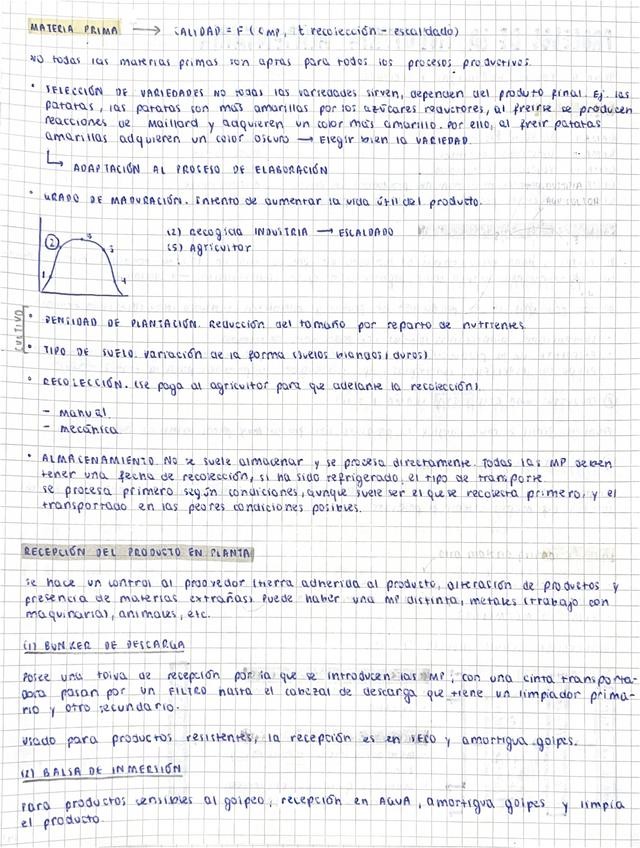 MATERIA PRIMA → CALIDAD = F (CMP, t recolección - escaldado)
No todas las materias primas son aptas para todos los procesos productivos.
• SELECCIÓN DE VARIEDADES No todas las variedades sirven, dependen del produto final. Ej. las
patatas, las patatas son más amarillas por los azúcares reductores, al freirse se producen
reacciones de Maillard y adquieren un color más amarillo. Por ello, al freir patatas
amarillas adquieren un color oscuro → Elegir bien la VARIEDAD.
↳ ADAPTACIÓN AL PROCESO DE ELABORACIÓN
• GRADO DE MADURACIÓN. Intento de aumentar la vida útil del producto.
(2) Recogida INDUSTRIA → ESCALDADO
(5) Agricultor
1 2 3 4
CULTIVO
• DENSIDAD DE PLANTACIÓN. Reducción del tamaño por reparto de nutrientes
• TIPO DE SUELO. Variación de la forma (suelos blandos/duros)
• RECOLECCIÓN. (se paga al agricultor para que adelante la recolección)
- manual
- mecánica
• ALMACENAMIENTO. No se suele almacenar y se procesa directamente. Todas las MP deben
tener una fecha de recolección, si ha sido refrigerado, el tipo de transporte
se procesa primero según condiciones, aunque suele ser el que se recolecta primero, y el
transportado en las peores condiciones posibles.
RECEPCIÓN DEL PRODUCTO EN PLANTA
Se hace un control al proovedor (tierra adherida al producto, alteración de productos y
presencia de materias extrañas) Puede haber una MP distinta, metales (trabajo con
maquinaria), animales, etc.
(1) BUNKER DE DESCARGA
Posee una tolva de recepción por la que se introducen las MP, con una cinta transporta-
dora pasan por un FILTRO hasta el cabezal de descarga que tiene un limpiador prima-
rio y otro secundario.
Usado para productos resistentes, la recepción es en SECO y amortigua golpes.
(2) BALSA DE INMERSIÓN
Para productos sensibles al golpeo, recepción en AGUA, amortigua golpes y limpia
el producto.